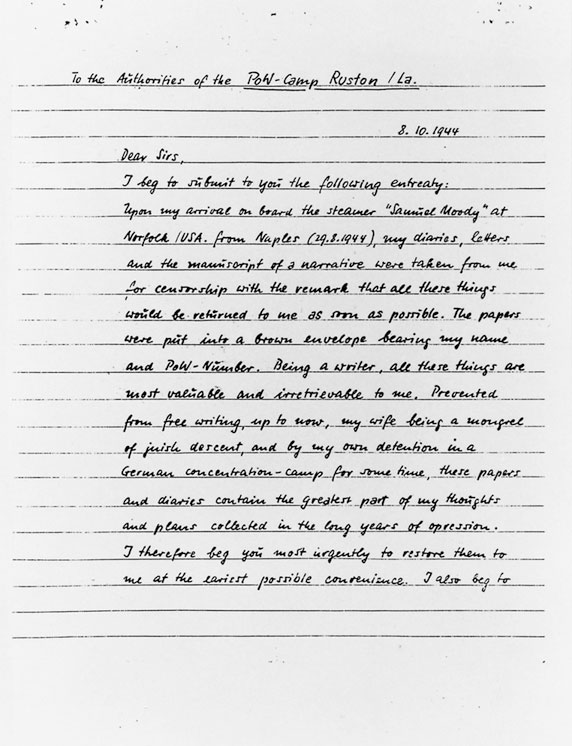 To the Authorities of the PoW-Camp Ruston / La.
8. 10. 1944
Dear Sirs,
I beg to submit to you the following entreaty:
Upon my arrival on board the steamer "Samuel Moody" at
Norfolk /USA. from Naples (29.8.1944), my diaries, letters
and the manuscript of a narrative were taken from me
for censorship with the remark that all these things
would be returned to me as soon as possible. The papers
were put into a brown envelope bearing my name
and PoW-Number. Being a writer, all these things are
most valuable and irretrievable to me. Prevented
from free writing, up to now, my wife being a mongrel
of juish descent, and by my own detention in a
German concentration-camp for some time, these papers
and diaries contain the greatest part of my thoughts
and plans collected in the long years of opression.
I therefore beg you most urgently to restore them to
me at the eariest possible convenience. I also beg to